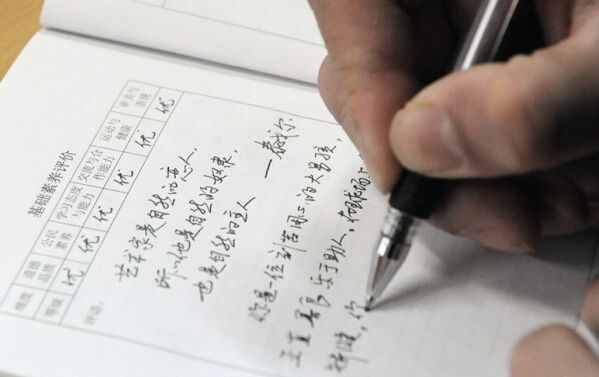 基础素养评价
维度 道德品质 公民素养 学习态度与能力 交流与合作能力 运动与健康 审美与表现
等级 优 优 优 优 优 优
评语:
艺术家是自然的恋人,
所以他是自然的奴隶,
也是自然的主人 —泰戈尔
你是一位刻苦用心的大男孩,
正直善良 乐于助人, 你